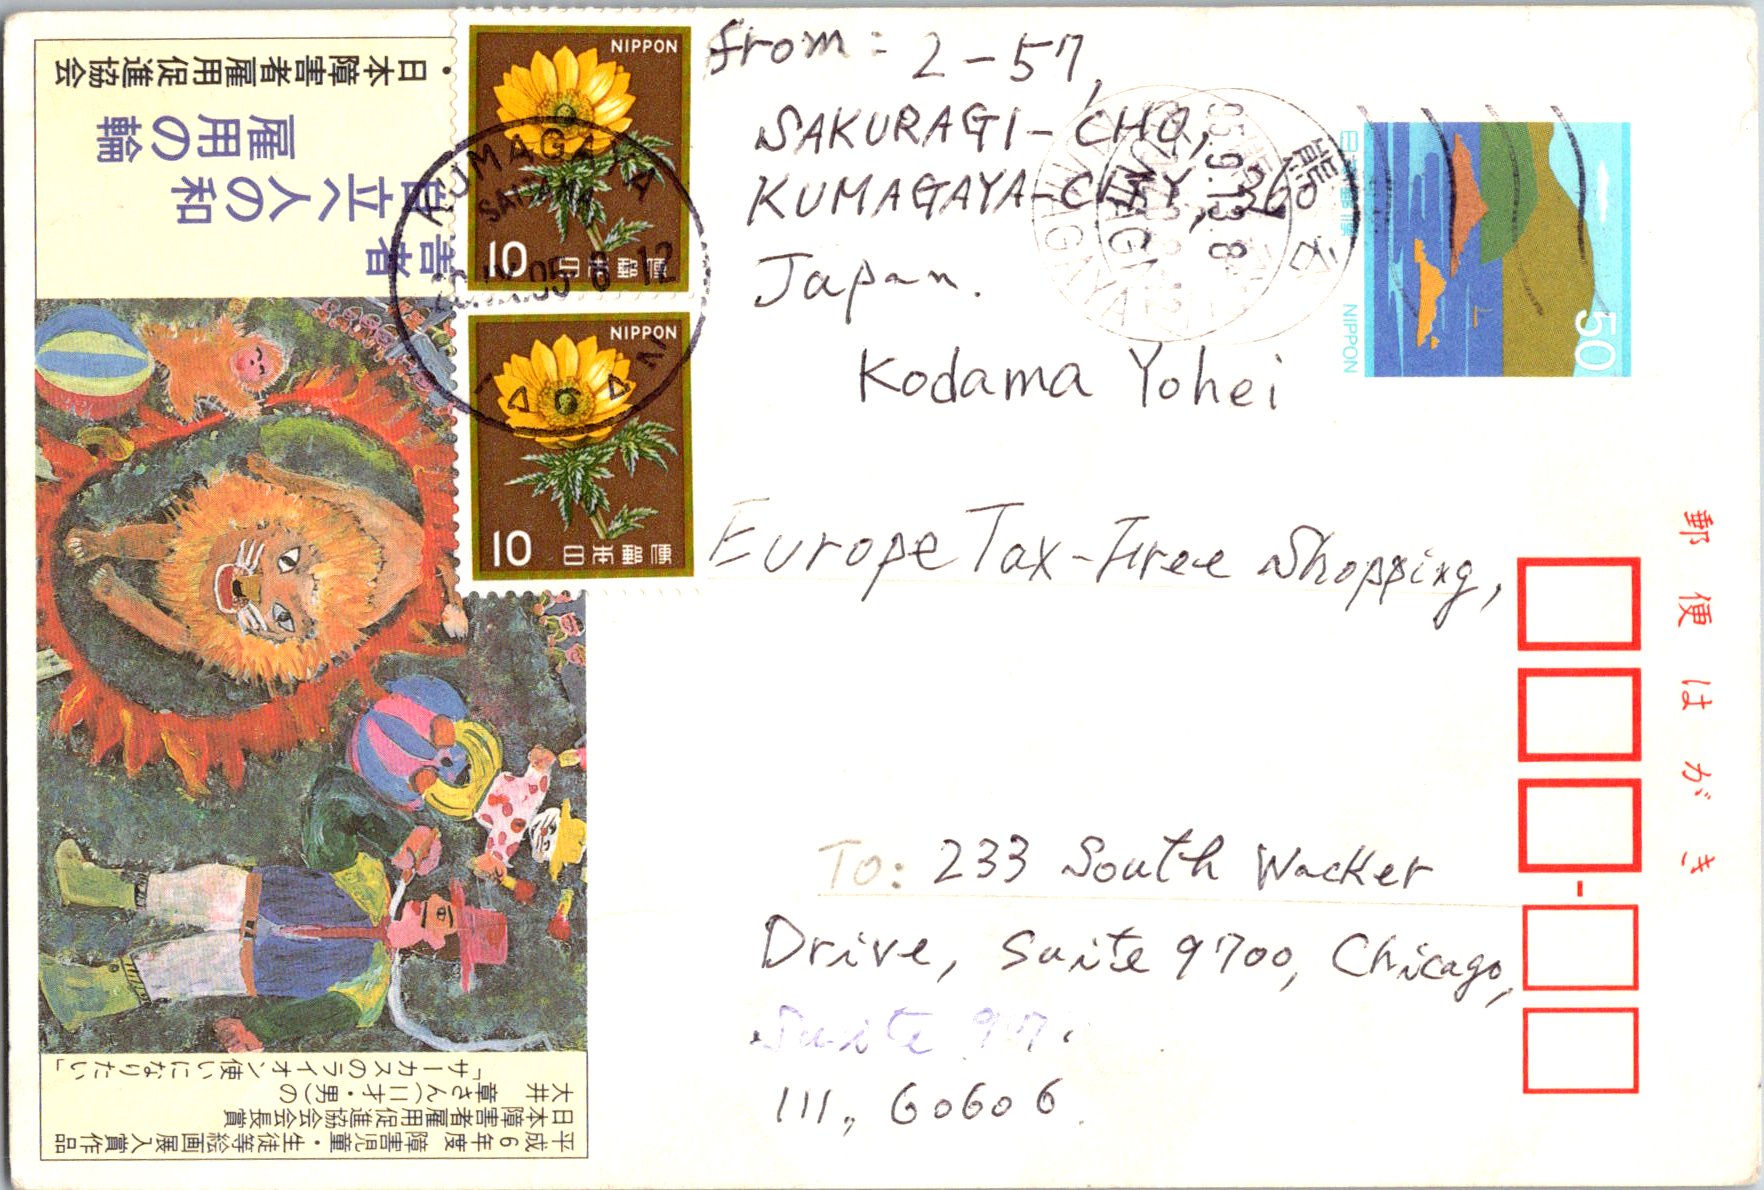 ・日本障害者雇用促進協会
雇用の輪
自立へ人の和
害者
NIPPON
10
日本郵便
NIPPON
10
日本郵便
KUMAGAYA
SAITAMA
.IX.95 8-12
JAPAN
from: 2-57,
SAKURAGI-CHO,
KUMAGAYA-CITY, 360
Japan.
Kodama Yohei
熊谷
95.9.13.8
KUMAGAYA
日本郵便
NIPPON
50
郵便はがき
Europe Tax-Free Shopping,
To: 233 South Wacker
Drive, Suite 9700, Chicago,
Suite 97
Ill., 60606
平成6年度 障害児童・生徒等絵画展入賞作品
日本障害者雇用促進協会会長賞
大井 章さん(11才・男)の
「サーカスのライオン使いになりたい」